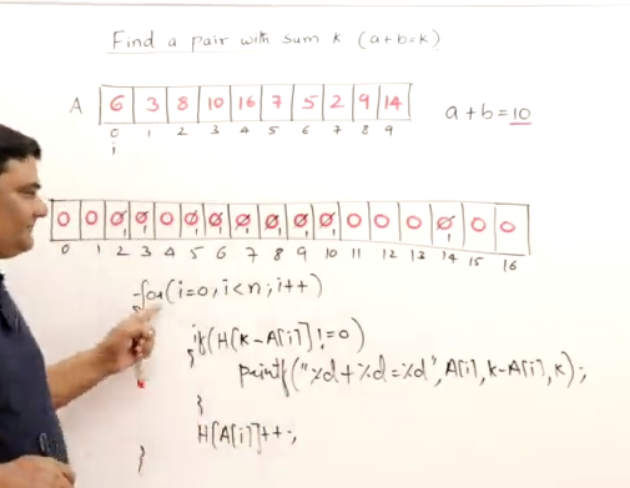 Find a pair with sum K (a+b=K)
A 6 3 8 10 16 7 5 2 9 14 a+b=10
0 1 2 3 4 5 6 7 8 9
i
0 0 0 0 0 0 0 0 0 0 0 0 0 0 0 0 0
1 1 1 1 1 1 1 1 1 1
0 1 2 3 4 5 6 7 8 9 10 11 12 13 14 15 16
for(i=0;i<n;i++)
{
if(H[K-A[i]]!=0)
{
printf("%d+%d=%d",A[i],K-A[i],K);
}
H[A[i]]++;
}